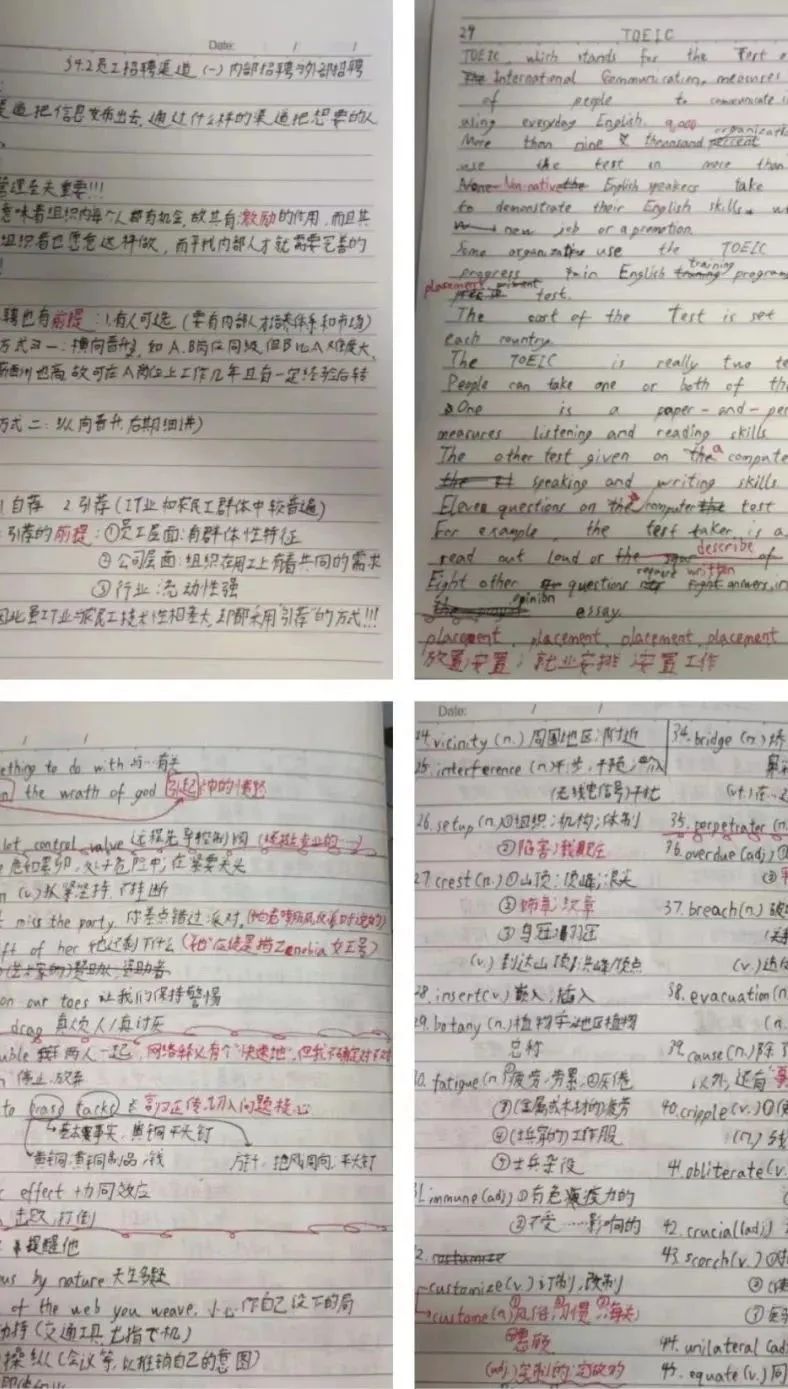 Date: / /
§4.2员工招聘渠道 (一) 内部招聘与外部招聘
渠道把信息发布出去,通过什么样的渠道把想要的人
管理至关重要!!!
意味着组织内每个人都有机会,故其有激励的作用,而且其
组织者也愿意这样做,而寻找内部人才就需要完善的
聘也有前提:1.有人可选(要有内部人才培养体系和市场)
方式一:横向晋升,如A.B岗位同级,但B比A难度大,
故可在A岗位上工作几年且有一定经验后转
方式二:纵向晋升,后期细讲)
1自荐 2引荐(IT业和农民工群体中较普遍)
引荐的前提:①员工层面:有群体性特征
②公司层面:组织在用工上有着共同的需求
③行业:流动性强
因此虽IT业与农民工技术性相差大,却都采用"引荐"的方式!!!
29 TOEIC
TOEIC, which stands for the Test o
The International Communication, measures
of people to communicate i
using everyday English. 9,000
More than nine thousand percent organizatio
use the test in more than
None Non-native the English speakers take
to demonstrate their English skills w
new job or a promotion.
Some organizations use the TOEIC
progress in English training training program
placement test.
The cost of the Test is set
each country.
The TOEIC is really two te
People can take one or both of th
One is a paper-and-pe
measures listening and reading skills
The other test given on the a compute
speaking and writing skills
Eleven questions on the a computer the test
For example, the test taker is a
read out loud or the describe of
Eight other questions require written answers, in
opinion essay.
placement, placement, placement, placement
放置;安置;就业安排;安置工作
/ /
ething to do with 与…有关
the wrath of god 引起神的愤怒
lot control valve 远程先导控制阀
危如累卵,处于危险中;在紧要关头
(v.)抓紧;坚持,不挂断
miss the party. 你差点错过派对.
ft of her 她还剩下什么("她"应该是指Zenobia女王号)
on our toes 让我们保持警惕
drag 真烦人/真讨厌
uble 两人一起,网络释义有个"快速地",但我不确定对不对
停止,放弃
to brass tacks 言归正传,切入问题核心
基本事实,黄铜平头钉
黄铜,黄铜制品,钱
effect 协同效应
击败,打倒
提醒他
ous by nature 天生多疑
of the web you weave. 小心作自己设下的局
劫持(交通工具尤指飞机)
操纵(会议等,以推销自己的意图)
Date: / /
24.vicinity (n.) 周围地区;附近
25.interference (n.)干涉,干扰,介入
(无线电信号)干扰
26.setup (n.)①组织;机构;体制
②陷害;栽赃
27.crest (n.)①山顶;顶峰;浪尖
②饰章;徽章
③鸟冠;羽冠
(v.)到达山顶/洪峰/顶点
28.insert(v.) 嵌入;插入
29.botany (n.)植物学;地区植物
总称
30.fatigue (n.)①疲劳,劳累,②厌倦
③(金属或木材的)疲劳
④(士兵穿的)工作服
⑤士兵杂役
31.immune (adj)①有免疫力的
②不受……影响的
32.customize
customize(v.)订制,改制
custome(n.)①风俗,②习惯,③海关
④惠顾
(adj)定制的,定做的
34.bridge (n.)桥
(vt.)在
35.perpetrator (n.
36.overdue (adj)①
37.breach(n.)破
(v.)
38.evacuation(n.
(n.
39.cause(n.)除了
以外,还有"事
40.cripple (v.)①使
(n.)
41.obliterate(v.
42.crucial(adj)
43.scorch(v.)①
②
44.unilateral (adj
45.equate(v.)同